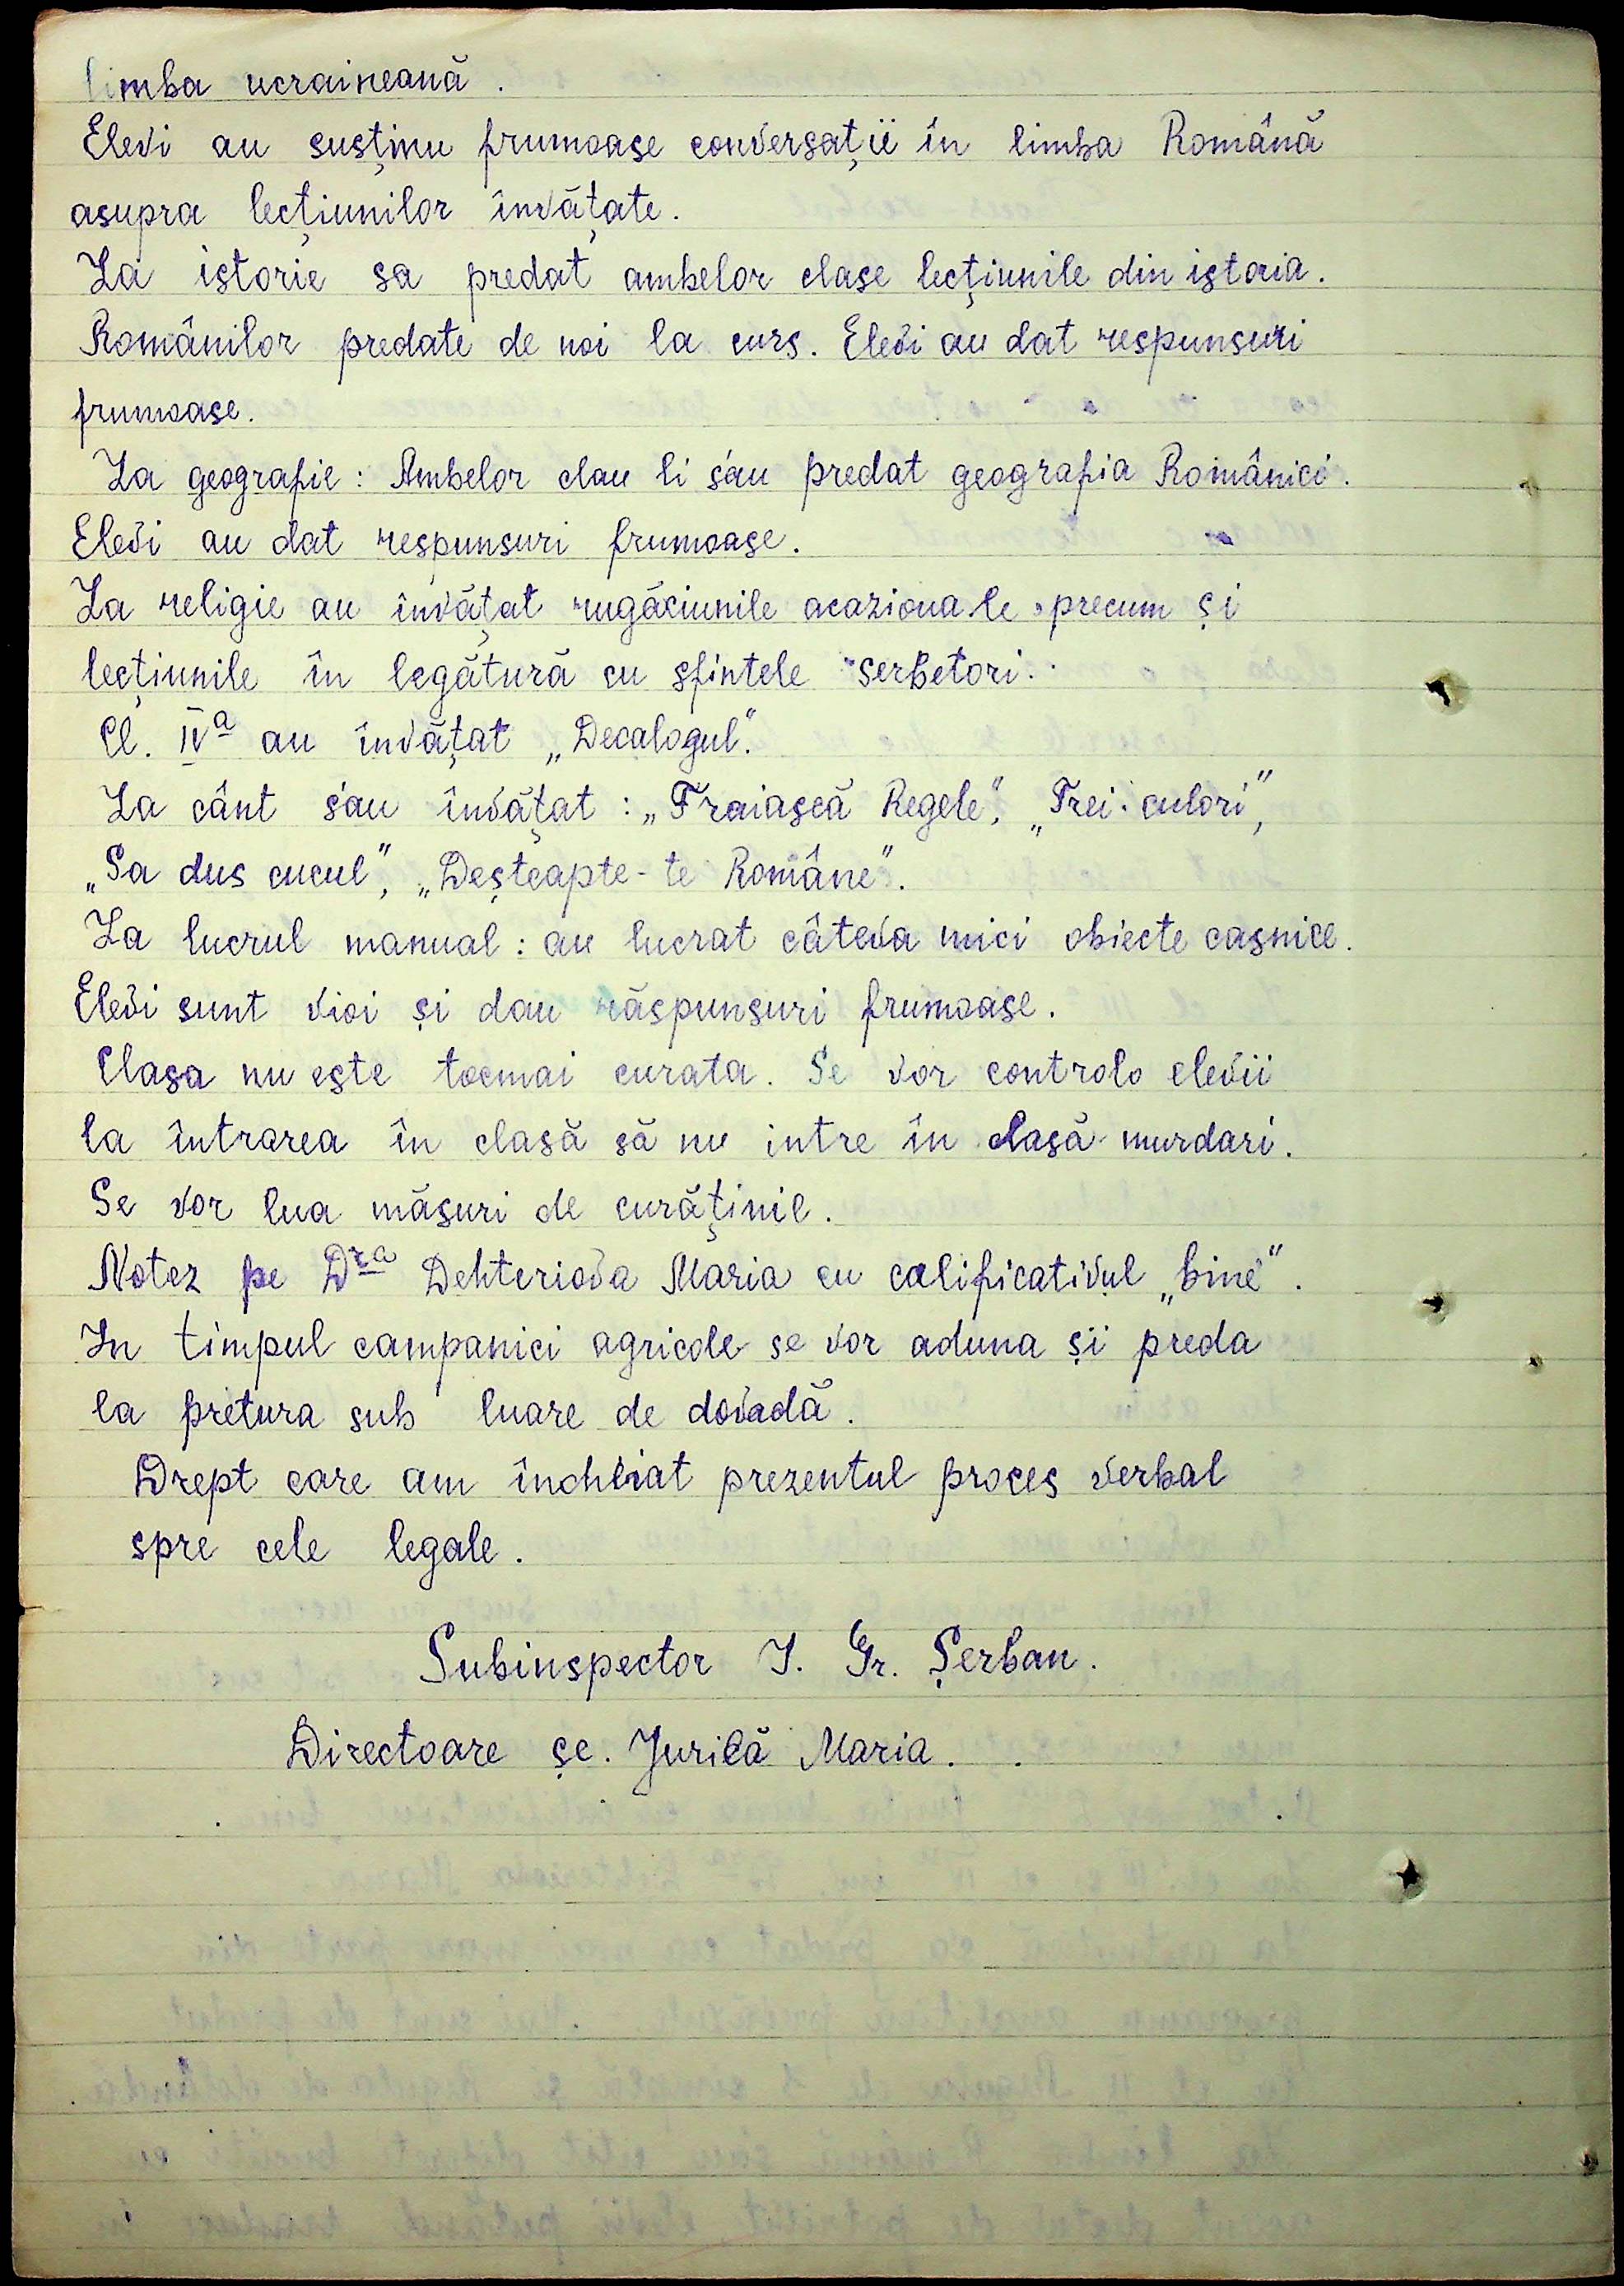 limba ucraineană.
Elevi au susținu frumoase conversații în limba Română
asupra lecțiunilor învățate.
La istorie sa predat ambelor clase lecțiunile din istoria.
Românilor predate de noi la curs. Elevi au dat respunsuri
frumoase.
La geografie: Ambelor clau li s'au predat geografia României.
Elevi au dat respunsuri frumoase.
La religie au învățat rugăciunile acazionale precum și
lecțiunile în legătură cu sfintele serbetori.
Cl. IVa au învățat „Decalogul".
La cânt s'au învățat: „Traiască Regele", „Trei culori",
„Sa dus cucul", „Deșteapte-te Române".
La lucrul manual: au lucrat câteva mici obiecte casnice.
Elevi sunt vioi și dau răspunsuri frumoase.
Clasa nu este tocmai curata. Se vor controlo elevii
la întrarea în clasă să nu intre în clasă murdari.
Se vor lua măsuri de curăținie.
Notez pe Dra Dehteriova Maria cu calificativul „bine".
In timpul campaniei agricole se vor aduna și preda
la pretura sub luare de dovadă.
Drept care am închiiat prezentul proces verbal
spre cele legale.
Subinspector I. Gr. Șerban.
Directoare șc. Jurilă Maria.